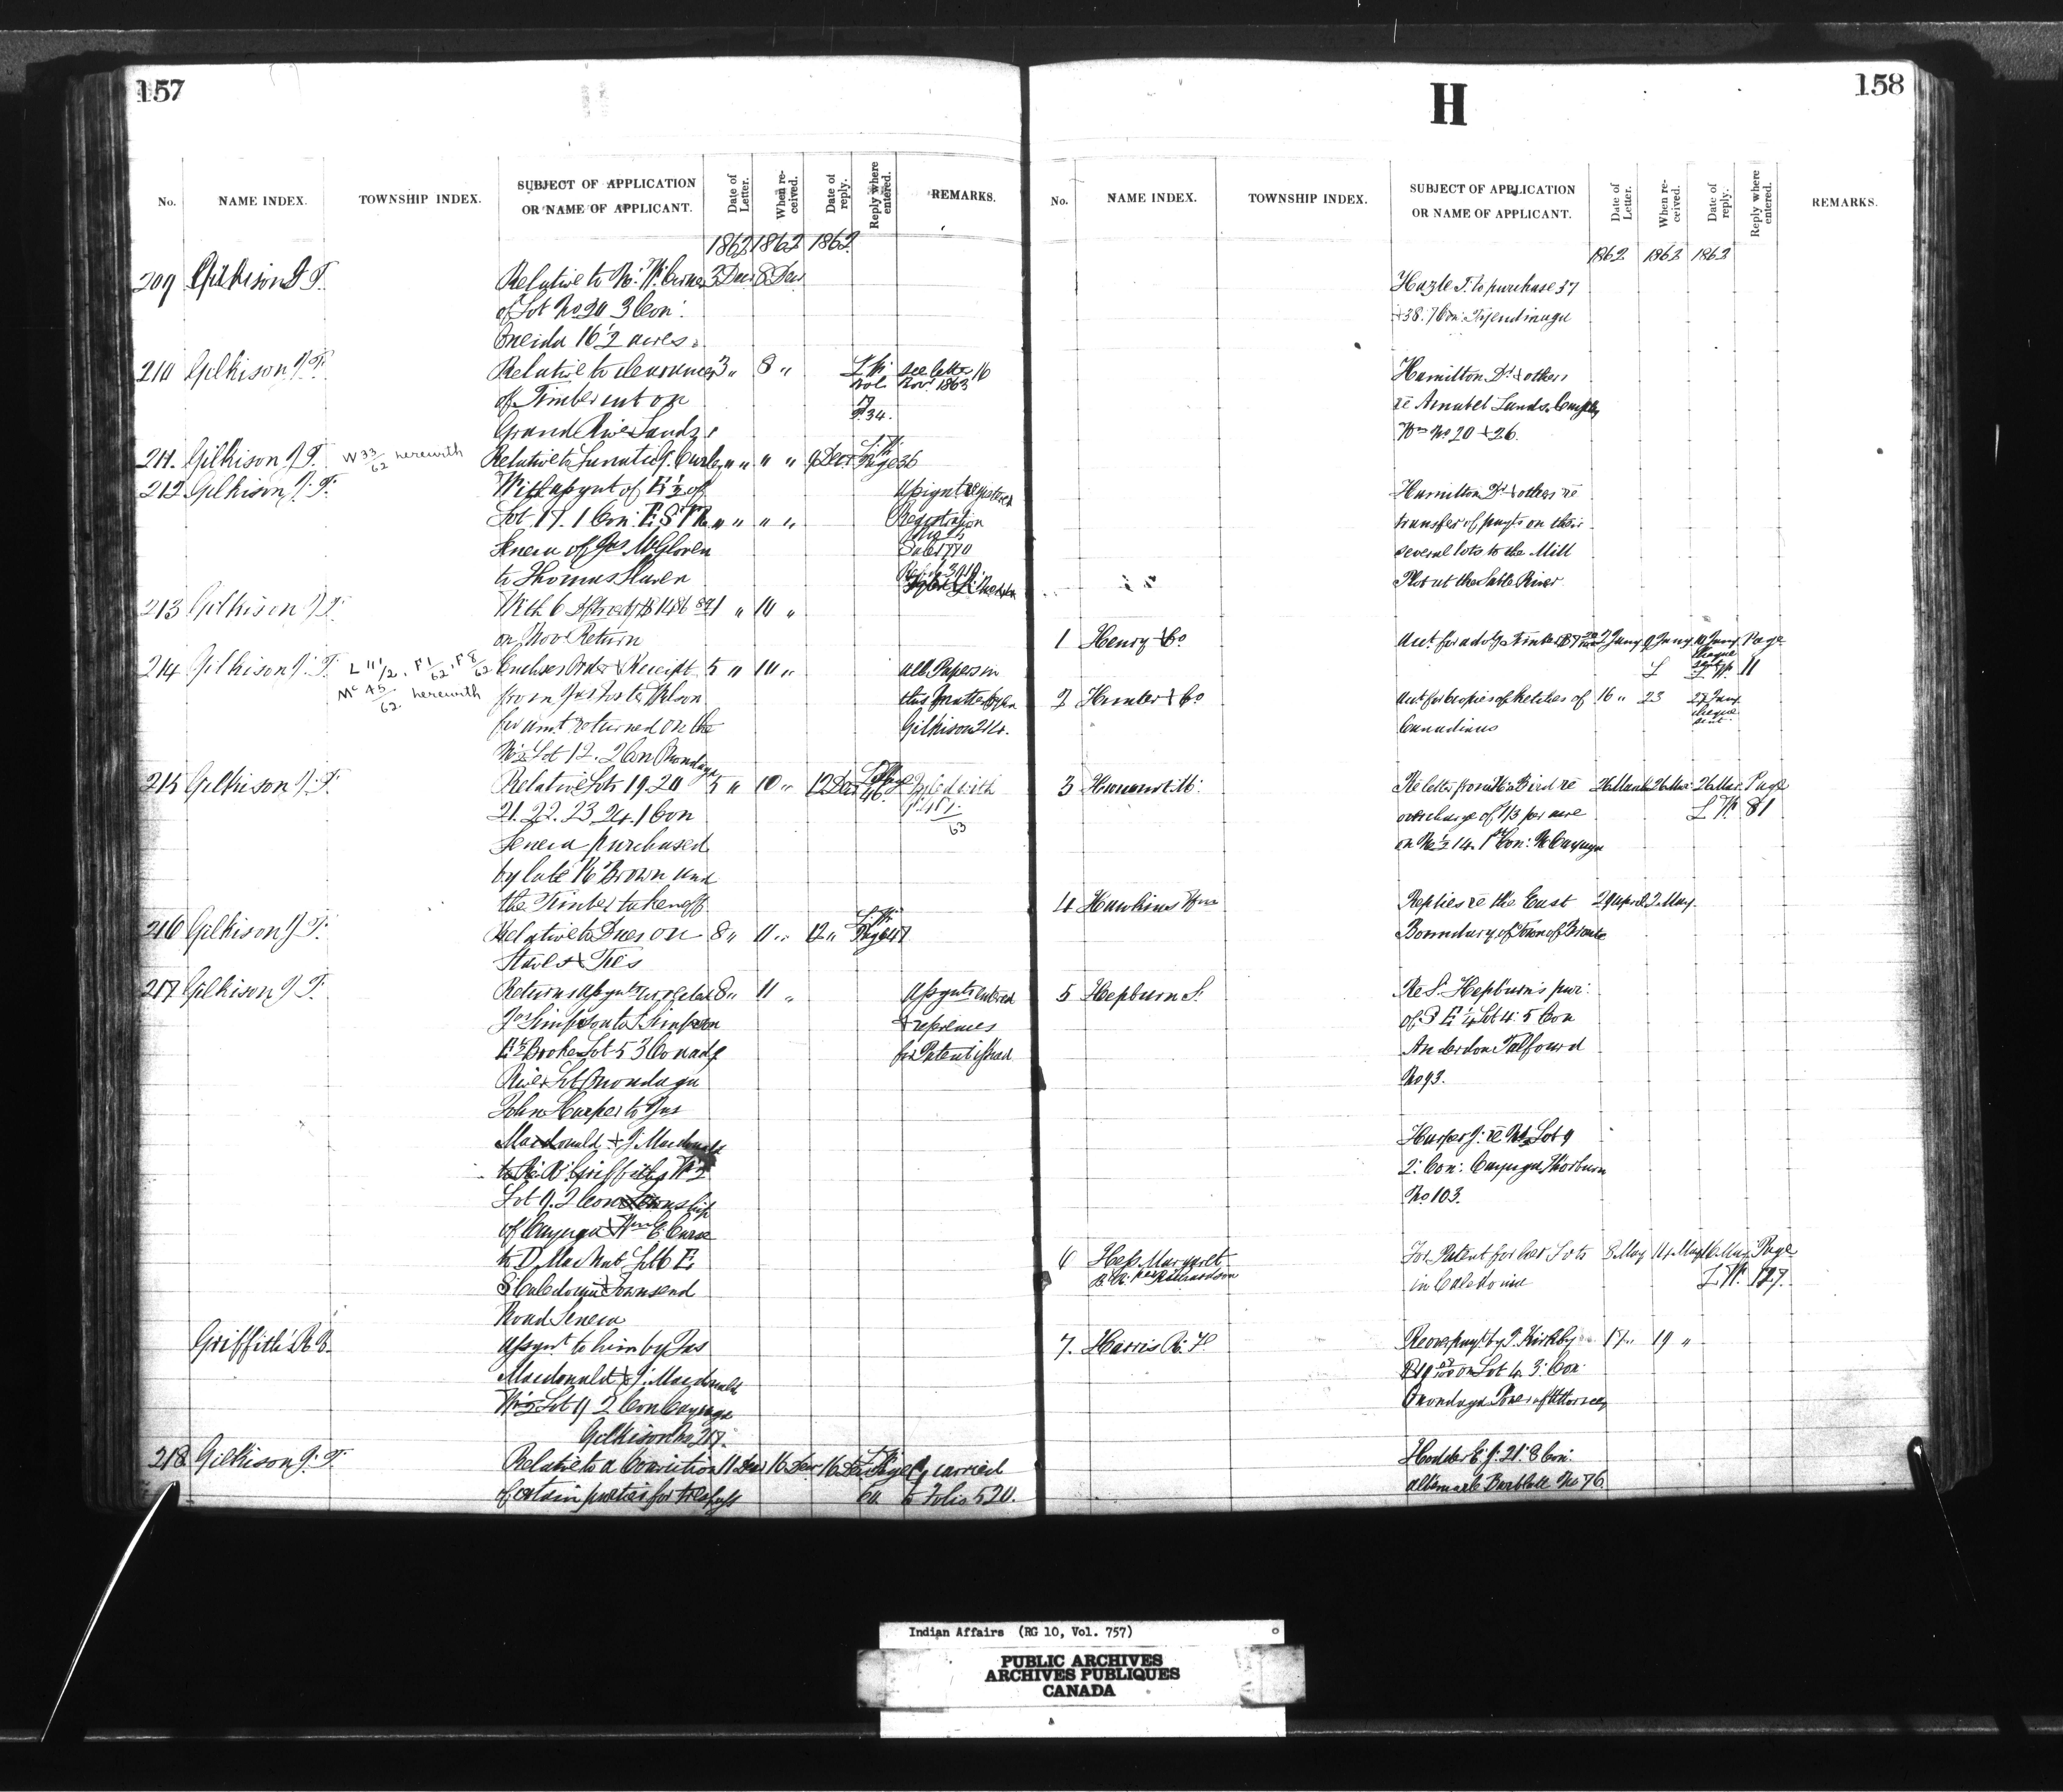 157
No. NAME INDEX. TOWNSHIP INDEX. SUBJECT OF APPLICATION OR NAME OF APPLICANT. Date of Letter. When received. Date of reply. Reply where entered. REMARKS.
1862 1862 1862
209 Gilkison J T. Relative to 3 Dec 8 Dec
of Lot No 20 3 Con:
Oneida 16½ acres.
210 Gilkison J T. Relative to clearance 3 " 8 " L W. see letter 16
of Timber cut on Vol Nov. 1863
17
P. 34.
Grand River Lands
211. Gilkison J T. W 33/62 herewith Relative to Lunatic J. " " " " 9 Dec L W. Page 36
212 Gilkison J. T. With assgnt of E ½ of assignt registered
Lot 17. 1 Con: E S P R " " " " Registration
Seneca of Jas Sale 1770
to Thomas
213 Gilkison J T. With 6 1 " 10 "
on Nov. Return
214 Gilkison J. T. L 111/2, F 1/62, F 8/62 Encloses Order & Receipt 5 " 10 " all Papers in
Mc 45/62 herewith from Jas Foster Wilson this matter
for amt. returned on the Gilkison 214.
Lot 12. 2 Con Onondaga
215 Gilkison J T. Relative Lots 19. 20 5 " 10 " 12 Dec L W Page 46. Fyled with
21. 22. 23 24. 1 Con 63
Seneca purchased
by late Brown and
the Timber taken off
216 Gilkison J T. Relative to Dues on 8 " 11 " 12 " L. W. Page 47
Staves & Ties
217 Gilkison J T. Returns assgnts 8 " 11 " Assgnts entered
Jos Simpson to Simpson & references
E ½ Broken Lot 5 3 Con adg for Patent issued
River Lot Onondaga
John Harper to Jas
Macdonald & J. Macdonald
to R. B. Griffiths
Lot 9. 2 Con Township
of Cayuga & Wm C.
to D MacNab Lot 6 E.
S Caledonia Townsend
Road Seneca
Griffiths R B. assgnt to him by Jas
Macdonald & J. Macdonald
Lot 9 2 Con Cayuga
Gilkison No 217.
218 Gilkison J. T. Relative to a Conviction 11 Dec 16 Dec 16 Dec L W Page carried
of certain parties for trespass 60. to Folio 520.
H
158
No. NAME INDEX. TOWNSHIP INDEX. SUBJECT OF APPLICATION OR NAME OF APPLICANT. Date of Letter. When received. Date of reply. Reply where entered. REMARKS.
1862 1862 1862
Hazle T. to purchase 37
& 38. 7 Con: Tyendinaga
Hamilton Dr & others
re Amabel Lands.
Wm No 20 & 26.
Hamilton Dr & others re
transfer of paymts on their
several lots to the Mill
Plot at the Sable River
1 Henry & Co Act. for advtg Timber 7 Jany 9 Jany 10 Jany Page
cheque sent L W. 11
2 Hunter & Co Act. for copies of Sketches of 16 " 23 27 Jany
Canadians cheque sent.
3 Re letter from Bird re 26 March 26 Mar 26 Mar Page
overcharge of 1/3 per acre L W 81
on 14. 1st Con: N Cayuga
4 Hawkins Wm Replies re the East 29 April 2 May.
Boundary of Town of Bronte
5 Hepburn S. Re S. Hepburn's pur:
of S E ¼ Lot 4. 5 Con
Anderdon Talfourd
No 93.
Harper J: re Lot 9
2: Con: Cayuga Thorburn
No 103.
6 Margaret For Patent for her Lots 8 May 14 May 16 May Page
per Richardson in Caledonia L W. 127.
7. Harris Re overpayt by J. Kirkby 17 " 19 "
on Lot 4. 3. Con
Onondaga Power of Attorney
Hodder E. J: 21. 8 Con:
Albemarle Bartlett No 76
Indian Affairs (RG 10, Vol. 757)
PUBLIC ARCHIVES
ARCHIVES PUBLIQUES
CANADA